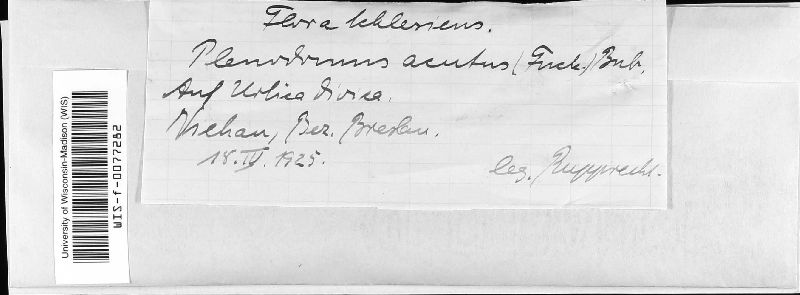 Flora Schlesiens.
Plenodomus acutus (Fuck.) Bub.
Auf Urtica dioica.
Bez. Breslau.
18. IV. 1925.
leg. Rupprecht.
University of Wisconsin-Madison (WIS)
WIS-f-0077282